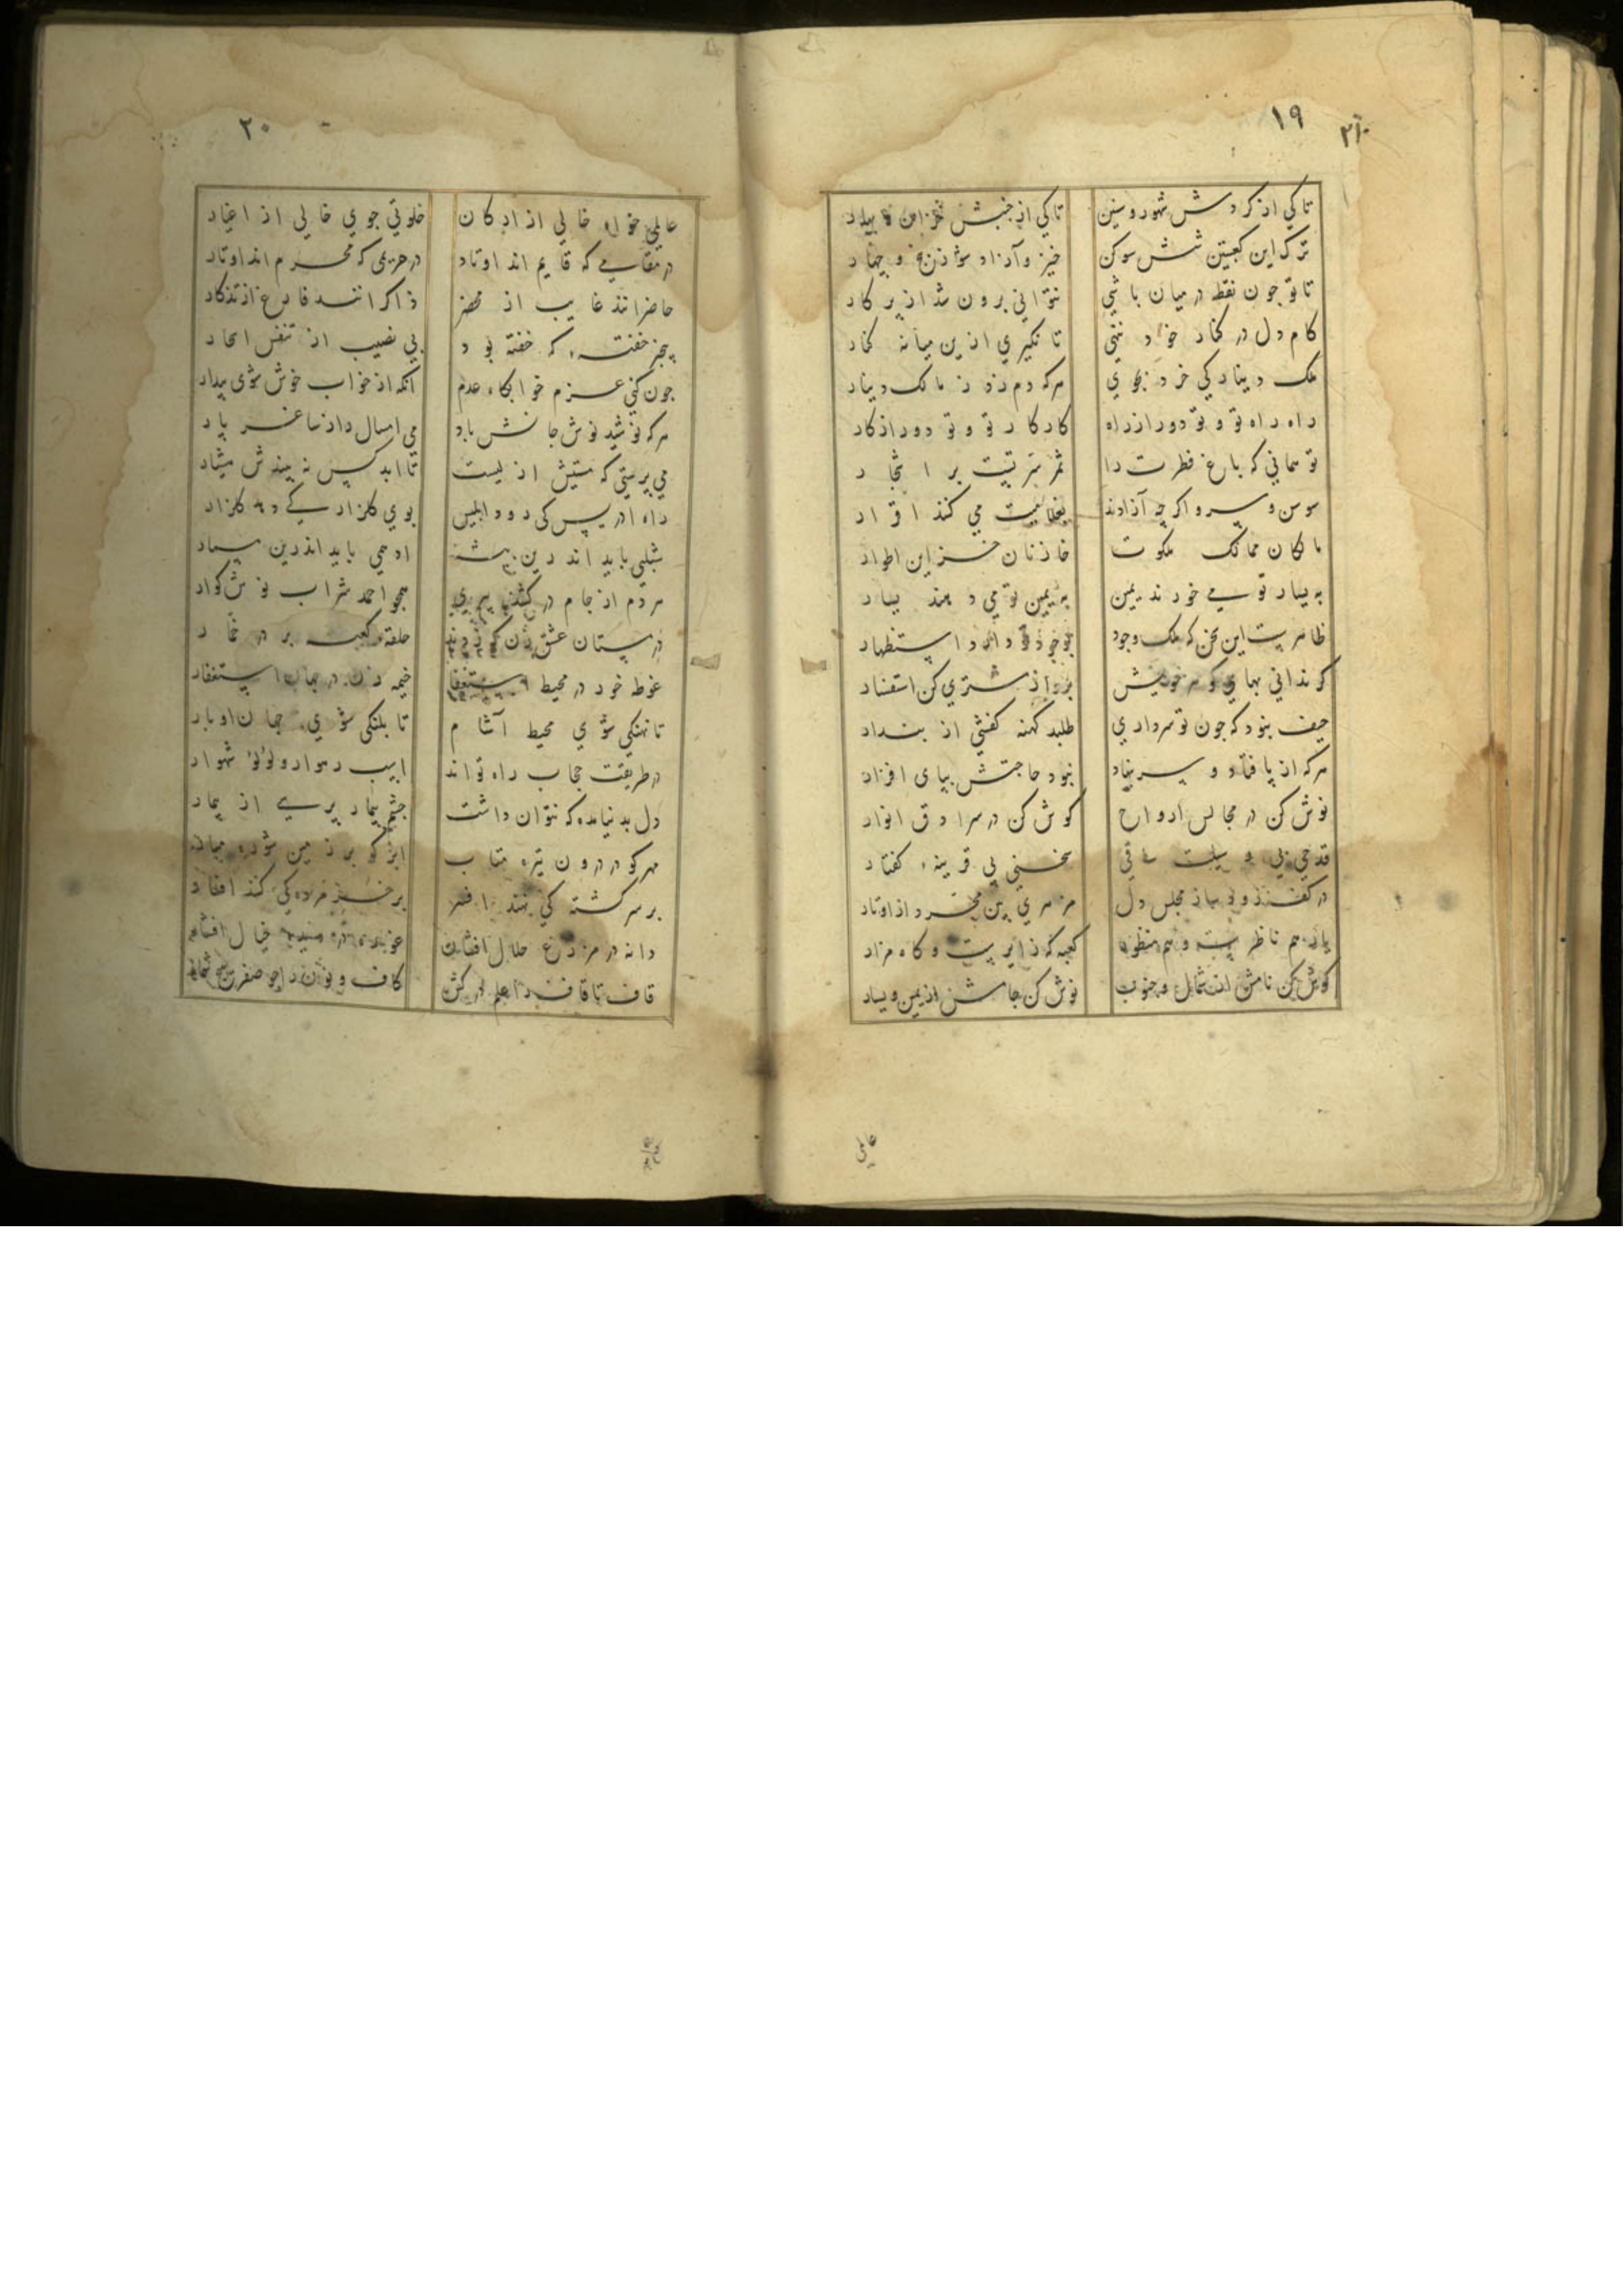 ۱۹
تا کی از کردش شهور و سنین
تا کی از جنبش خزان و بهار
ترک این کعبتین شش سو کن
خیز و آزاد شو ز پنج و چهار
تا تو جون نقطه در میان باشی
نتوانی برون شد از برکار
کام دل در کنار خود ننهی
تا نکیری ازین میانه کنار
ملک دینار کی خرد بجوی
هرکه دم زد ز مالک دینار
راه راه تو و تو دور از راه
کار کار تو و تو دور از کار
تو همانی که باغ فطرت را
ثمر تربیت بر اشجار
سوسن و سرو اکرچه آزادند
بغلامیت می کنند اقرار
مالکان ممالک ملکوت
خازنان خزاین اطوار
به یسار تو می خورند یمین
به یمین تو می دهند یسار
ظاهرست این سخن که ملک وجود
بوجود تو دارد استظهار
کر ندانی بهای کوهر خویش
برو از مشتری کن استفسار
حیف بنود که جون تو سرداری
طلبد کهنه کفشی از بندار
هرکه از پا فتاد و سر بنهاد
نبود حاجتش بپای افزار
نوش کن در مجالس ارواح
کوش کن در سرادق انوار
قدحی بی وسیلت ساقی
سخنی بی قرینه کفتار
مجلس دل
یار هم ناظرست و هم منظور
کعبه که زایرست و کاه مزار
کوش کن نامش از شمال و جنوب
نوش کن جامش از یمین و یسار
عالمی
۲۰
عالمی خواه خالی از ارکان
خلوتی جوی خالی از اغیار
در مقامی که قایم اند اوتاد
در حریمی که محرم اند اوتاد
حاضرانند غایب از محضر
ذاکرانند فارغ از تذکار
بیخبر خفته که خفته بود
بی نصیب از تنفس اسحار
جون کنی عزم خوابکاه عدم
آنکه از خواب خوش شوی بیدار
هرکه نوشید نوش جانش باد
می امسال را ز ساغر پار
می پرستی که مستیش از نیست
تا ابد کس نه بیندش هشیار
راه ادریس کی رود ابلیس
بوی کلزار کی دهد کلزار
شبلی باید اندرین بیشه
ادهمی باید اندرین مسمار
هر دم از جام در کشیدن می
همجو احمد شراب نوش کوار
در بستان عشق
حلقه کعبه بر در خمار
غوطه خور در محیط استغفار
خیمه زن در جهان استغفار
تا نهنکی شوی محیط آشام
تا بلنکی شوی جهان اوبار
در طریقت حجاب راه تواند
اسب رهوار و لؤلؤ شهوار
دل بدنیا مده که نتوان داشت
جشم بیمار پرسی از بیمار
مهر کو در درون تیره متاب
ابر کو بر زمین شوره مبار
بر سر کشته کی نهند افسر
بر خر مرده کی کنند افسار
دانه در مزرع حلال افشان
قاف تا قاف را علم در کش
کاف و نون را جو صفر هیچ شمار